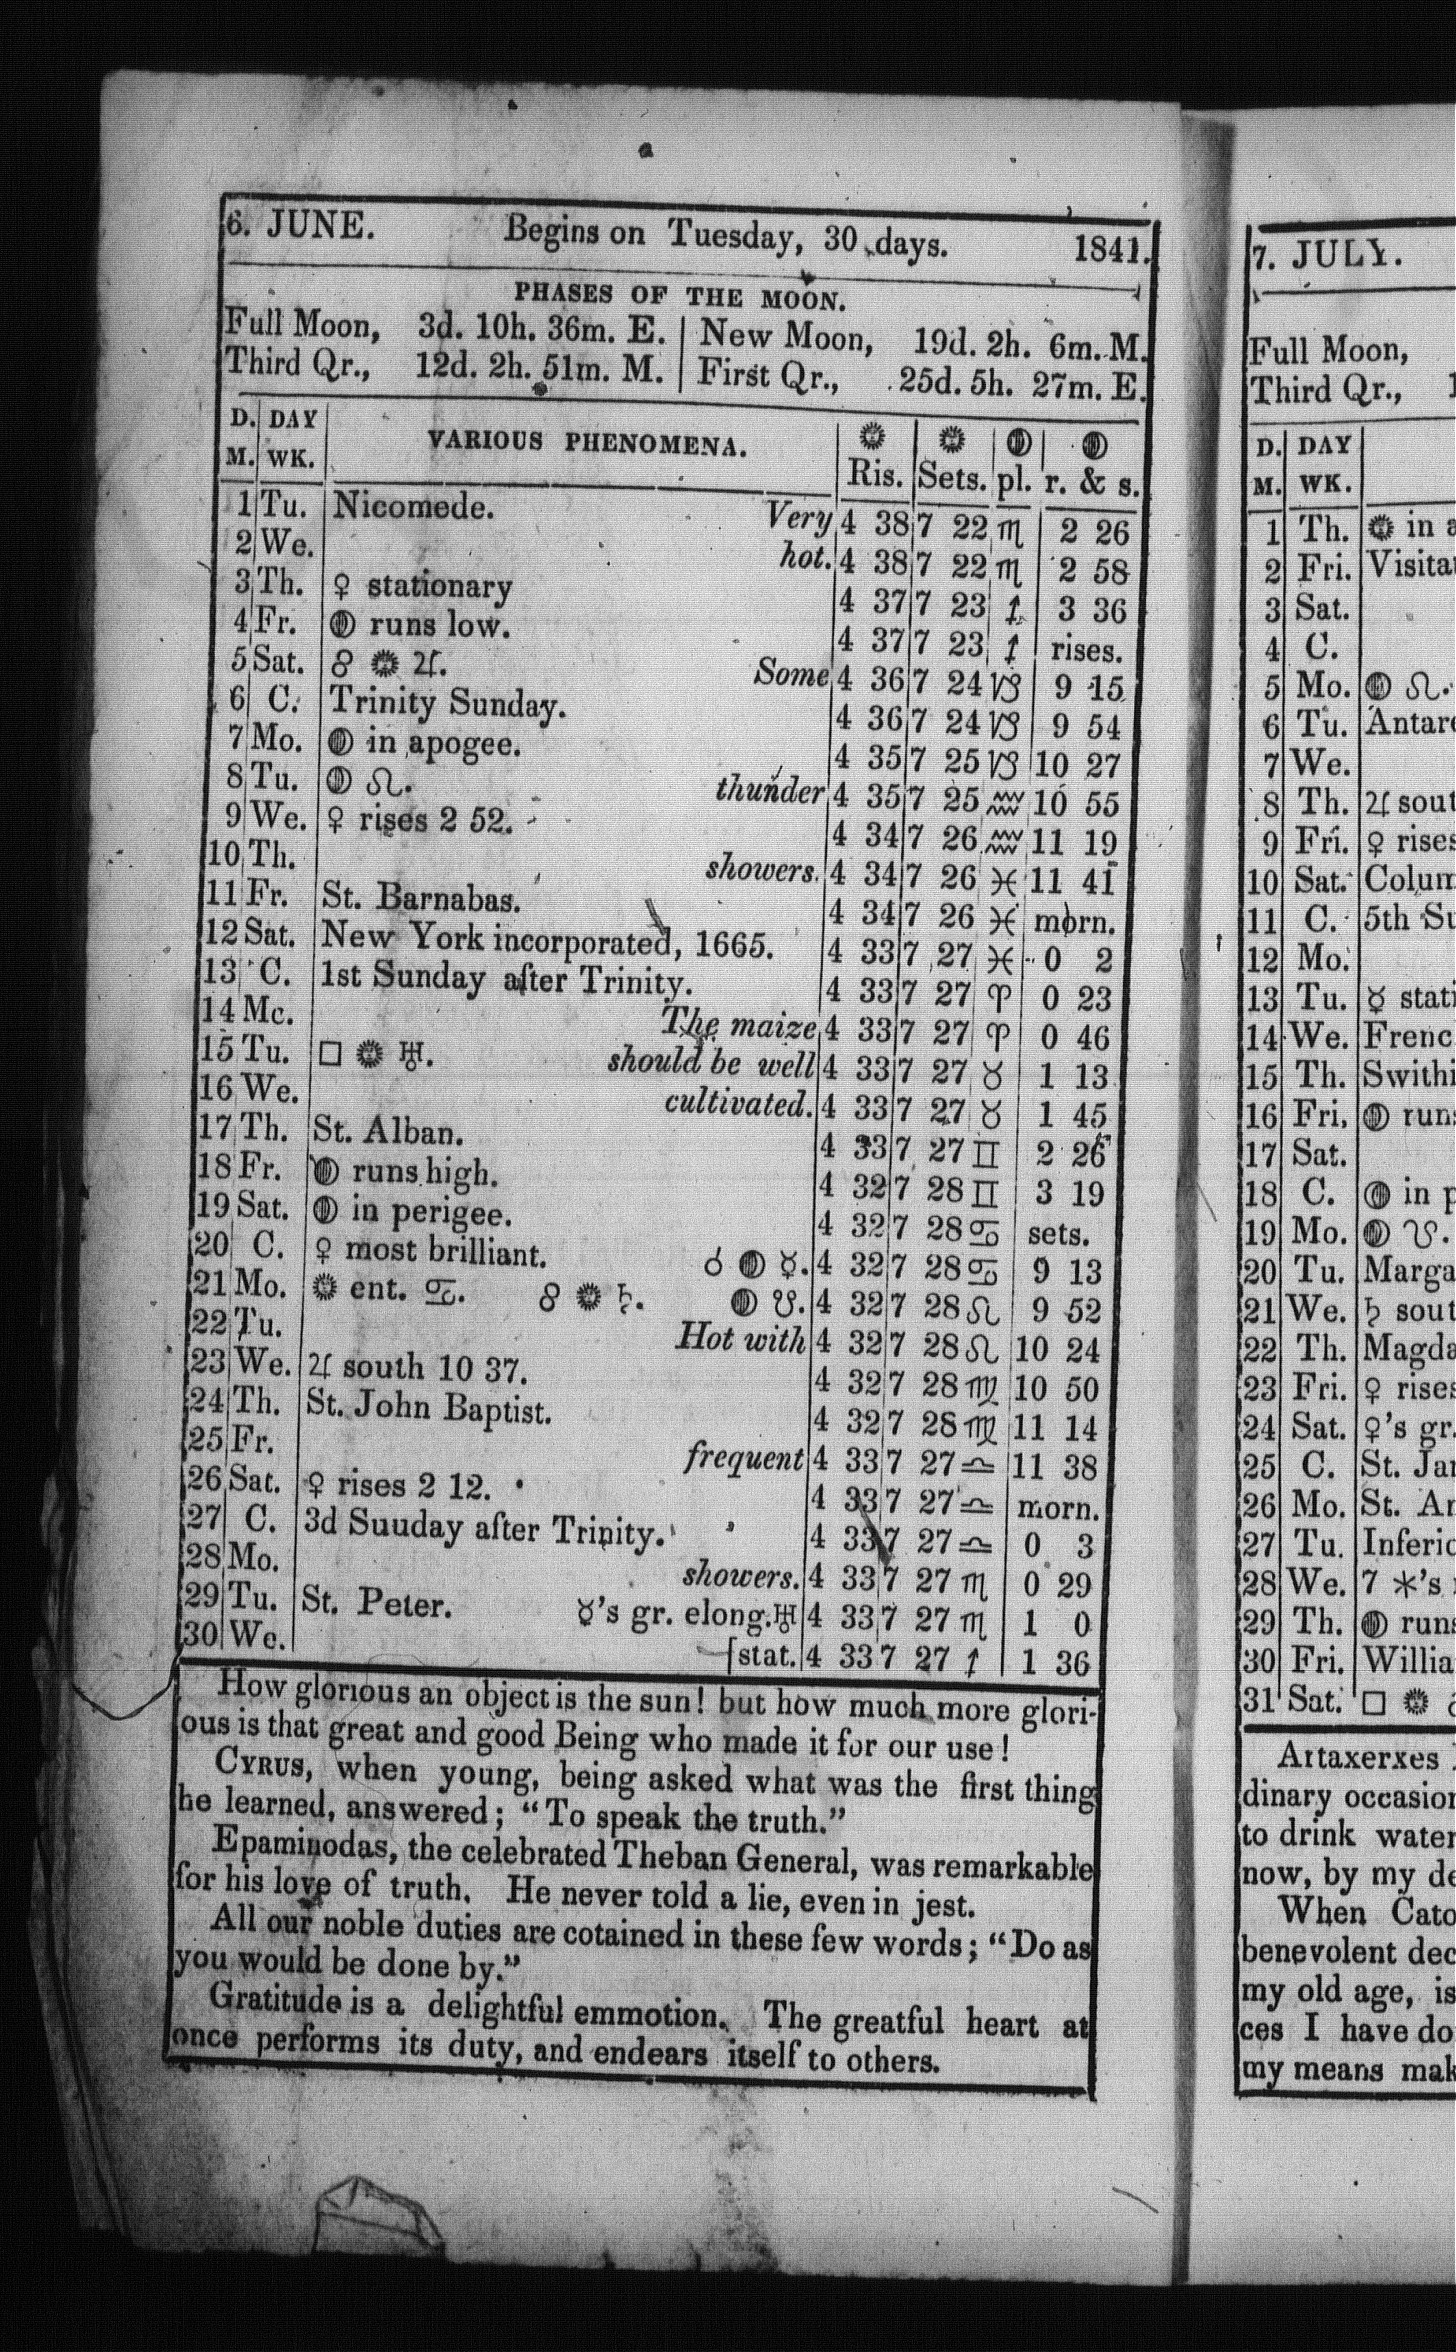 6. JUNE. Begins on Tuesday, 30 days. 1841.
PHASES OF THE MOON.
Full Moon, 3d. 10h. 36m. E. | New Moon, 19d. 2h. 6m. M.
Third Qr., 12d. 2h. 51m. M. | First Qr., 25d. 5h. 27m. E.
D. M. | DAY WK. | VARIOUS PHENOMENA. | Ris. | Sets. | pl. | r. & s.
1 Tu. Nicomede. Very 4 38 7 22 ♏ 2 26
2 We. hot. 4 38 7 22 ♏ 2 58
3 Th. ♀ stationary 4 37 7 23 ♐ 3 36
4 Fr. ☽ runs low. 4 37 7 23 ♐ rises.
5 Sat. ☍ ☉ ♃. Some 4 36 7 24 ♑ 9 15
6 C. Trinity Sunday. 4 36 7 24 ♑ 9 54
7 Mo. ☽ in apogee. 4 35 7 25 ♑ 10 27
8 Tu. ☽ ☊. thunder 4 35 7 25 ♒ 10 55
9 We. ♀ rises 2 52. 4 34 7 26 ♒ 11 19
10 Th. showers. 4 34 7 26 ♓ 11 41
11 Fr. St. Barnabas. 4 34 7 26 ♓ morn.
12 Sat. New York incorporated, 1665. 4 33 7 27 ♓ 0 2
13 C. 1st Sunday after Trinity. 4 33 7 27 ♈ 0 23
14 Mo. The maize 4 33 7 27 ♈ 0 46
15 Tu. □ ☉ ♅. should be well 4 33 7 27 ♉ 1 13
16 We. cultivated. 4 33 7 27 ♉ 1 45
17 Th. St. Alban. 4 33 7 27 ♊ 2 26
18 Fr. ☽ runs high. 4 32 7 28 ♊ 3 19
19 Sat. ☽ in perigee. 4 32 7 28 ♋ sets.
20 C. ♀ most brilliant. ☌ ☽ ☿. 4 32 7 28 ♋ 9 13
21 Mo. ☉ ent. ♋. ☍ ☉ ♄. ☽ ☋. 4 32 7 28 ♌ 9 52
22 Tu. Hot with 4 32 7 28 ♌ 10 24
23 We. ♃ south 10 37. 4 32 7 28 ♍ 10 50
24 Th. St. John Baptist. 4 32 7 28 ♍ 11 14
25 Fr. frequent 4 33 7 27 ♎ 11 38
26 Sat. ♀ rises 2 12. 4 33 7 27 ♎ morn.
27 C. 3d Suuday after Trinity. 4 33 7 27 ♎ 0 3
28 Mo. showers. 4 33 7 27 ♏ 0 29
29 Tu. St. Peter. ☿'s gr. elong. ♅ 4 33 7 27 ♏ 1 0
30 We. [stat. 4 33 7 27 ♐ 1 36
How glorious an object is the sun! but how much more glori-
ous is that great and good Being who made it for our use!
CYRUS, when young, being asked what was the first thing
he learned, answered; "To speak the truth."
Epaminodas, the celebrated Theban General, was remarkable
for his love of truth. He never told a lie, even in jest.
All our noble duties are cotained in these few words; "Do as
you would be done by."
Gratitude is a delightful emmotion. The greatful heart at
once performs its duty, and endears itself to others.
7. JULY.
Full Moon,
Third Qr., 1
D. M. | DAY WK.
1 Th. ☉ in
2 Fri.
3 Sat.
4 C.
5 Mo. ☽ ☊.
6 Tu.
7 We.
8 Th. ♃
9 Fri. ♀ rises
10 Sat.
11 C. 5th
12 Mo.
13 Tu. ☿
14 We.
15 Th.
16 Fri. ☽
17 Sat.
18 C. ☽ in
19 Mo. ☽ ☋.
20 Tu.
21 We. ♄
22 Th.
23 Fri. ♀ rises
24 Sat. ♀'s gr.
25 C. St.
26 Mo. St.
27 Tu.
28 We. 7 *'s
29 Th. ☽
30 Fri.
31 Sat. □ ☉
Artaxerxes
dinary
to drink water
now, by my
When Cato
benevolent
my old age, is
ces I have
my means